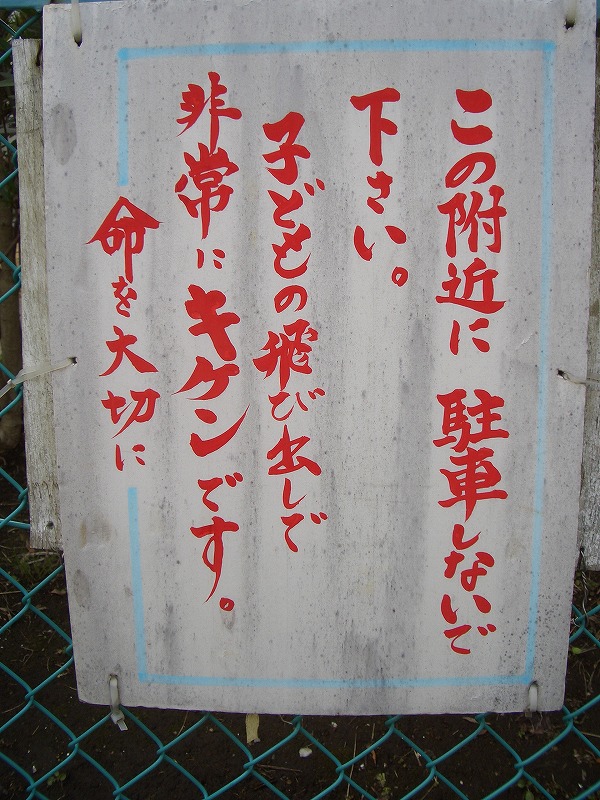 この附近に 駐車しないで
下さい。
子どもの飛び出しで
非常にキケンです。
命を大切に